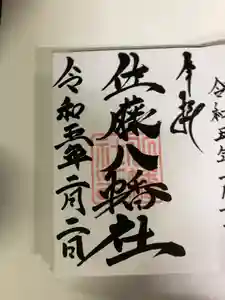 奉拝
佐藤八幡社
令和五年二月二日
令和五年一月